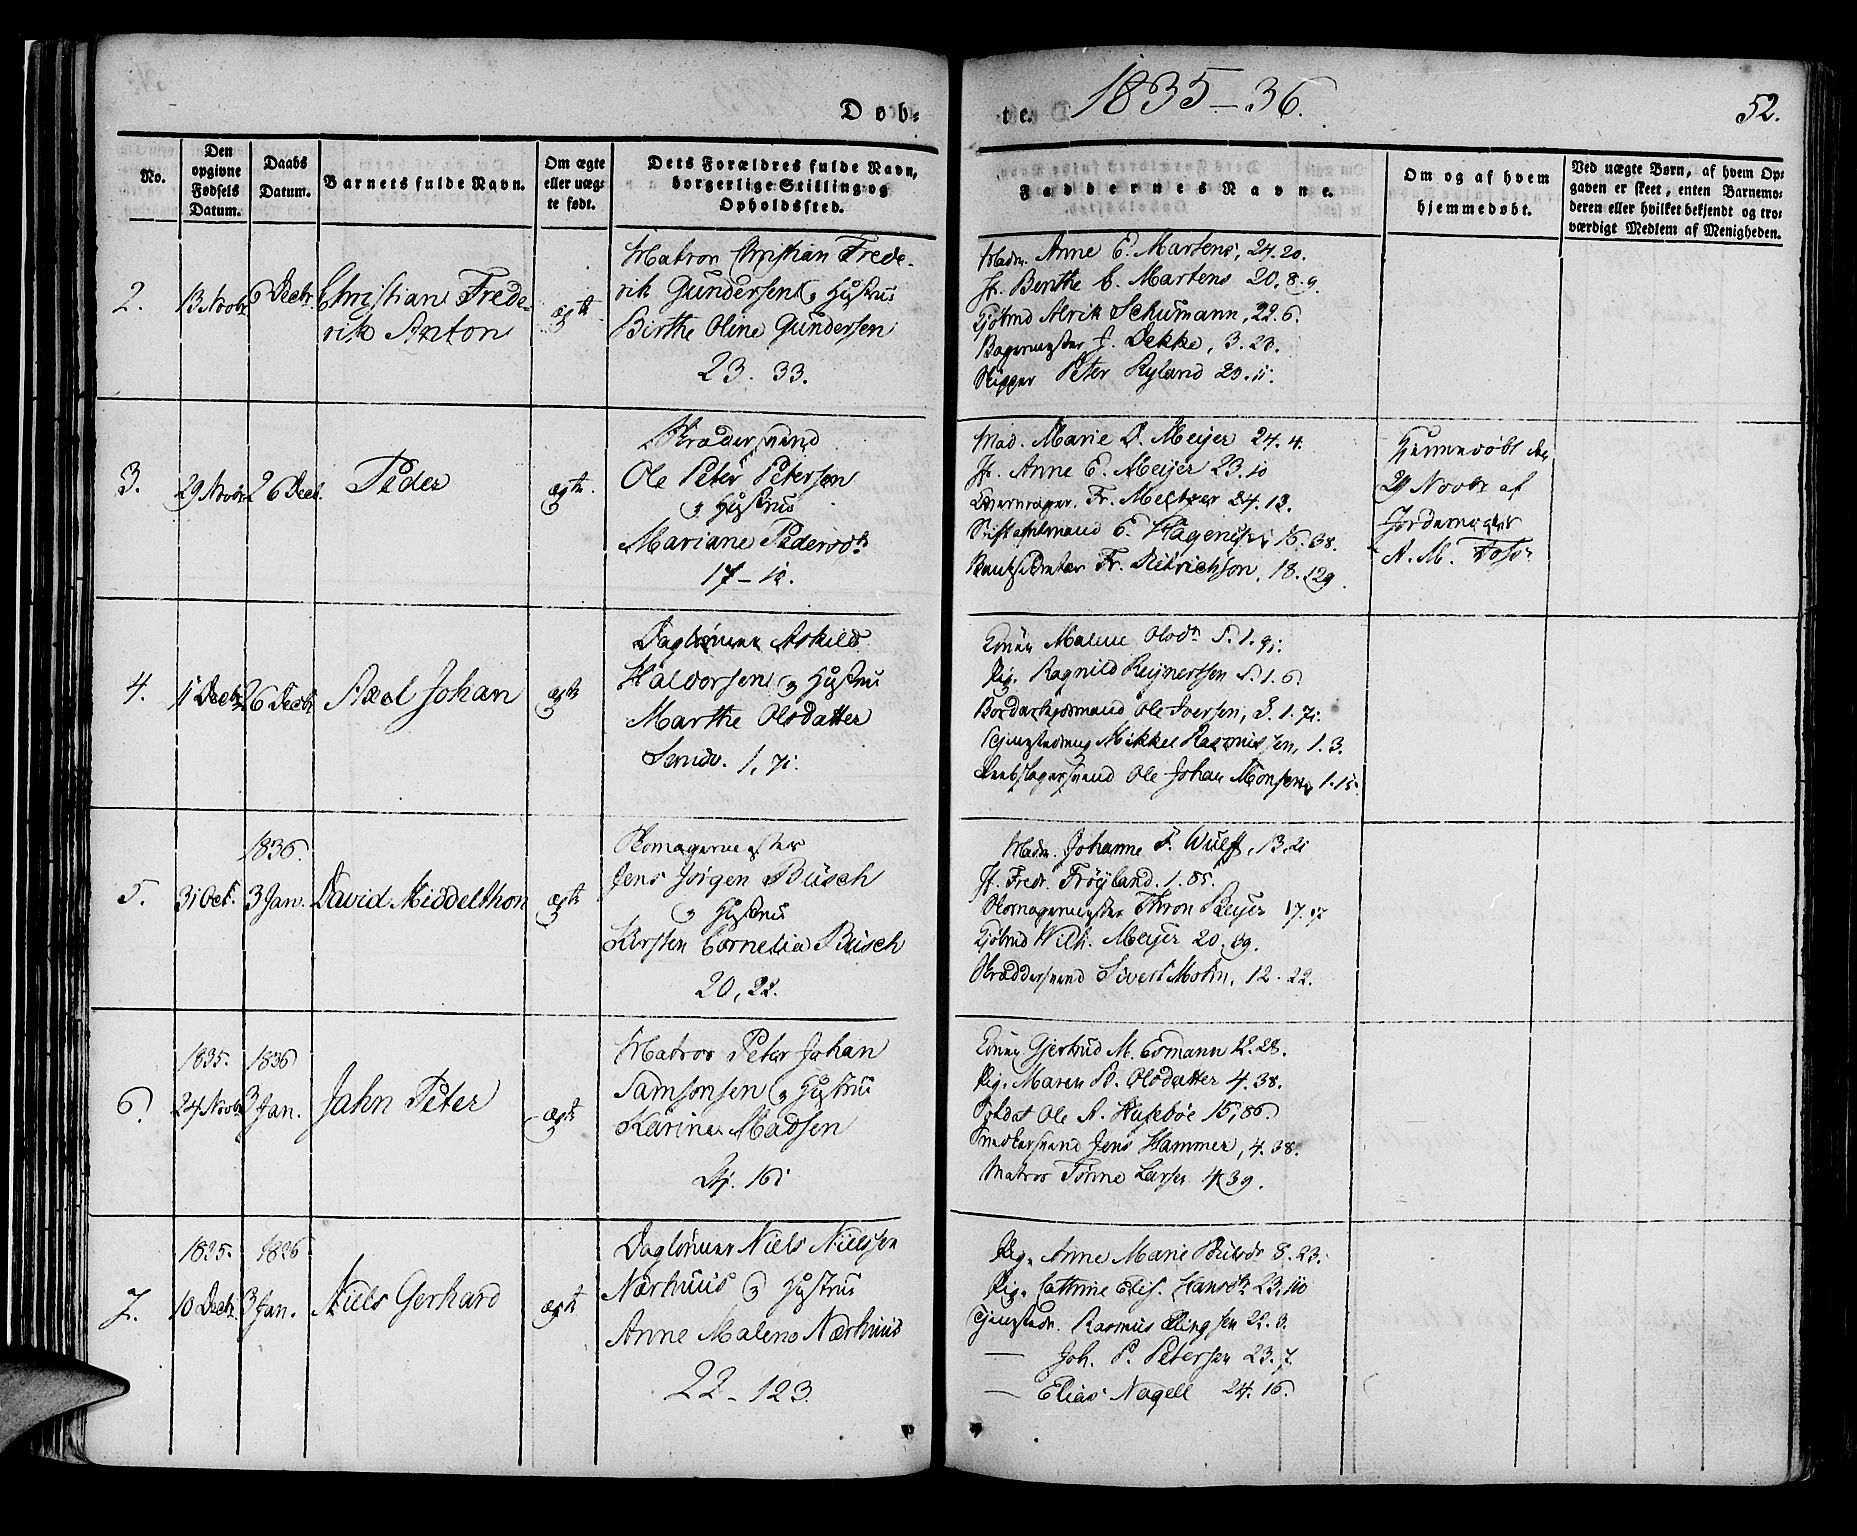 Døb-
te.
1835-36.
52.
No.
Den
opgivne
Fødsels
Datum.
Daabs
Datum.
Barnets fulde Navn.
Om ægte
eller uæg-
te født.
Dets Forældres fulde Navn,
borgerlige Stilling og
Opholdssted.
Faddernes Navne.
Om og af hvem
hjemmedøbt.
Ved uægte Børn, af hvem Op-
gaven er skeet, enten Barnemo-
deren eller hvilket bekjendt og tro-
værdigt Medlem af Menigheden.
2.
13 Novbr
6 Decbr
Christian Frede-
rik Anton
ægte
Matros Christian Frede-
rik Gundersen & Hustrue
Birthe Oline Gundersen
23. 33.
Madm. Anne E. Martens, 24. 20.
Jf. Berthe C. Martens 20. 8. 9.
Kjøbmd Alrik Schumann, 22. 6.
Bagermester J. Dekke, 3. 23.
Skipper Peter Ryland 23. 11.
3.
29 Novbr
26 Decbr
Peder
ægte.
Skrædersvend
Ole Peter Petersen
& Hustrue
Mariane Pedersdtr
17 - 12.
Mad. Marie D. Meyer 24. 4.
Jf. Anne E. Meyer 23. 10
Fr. Meltzer 24. 12.
Stiftamtmand E. Hagerup 15. 38.
Fr. Dietrichson, 18. 129.
Hjemmedøbt den
29 Novbr af
Jordemoder
A. M. Foss
4.
11 Decbr
26 Decbr
Axel Johan
ægte
Daglönner Askild
Halvorsen & Hustrue
Marthe Olsdatter
Sandv. 1, 71.
Malene Olsdtr S. 1. 91.
Pig. Ragnild Reinertsen S. 1. 6.
Ole Iversen, S. 1. 71.
Mikkel Rasmussen, 1. 3.
Reebslagersvend Ole Johan Monsen, 1. 15.
5.
31 Oct.
1836.
3 Jan.
David Middelthon
ægte
Skomagermester
Jens Jørgen Büsch
& Hustrue
Kirsten Cornelia Büsch
20, 22.
Madm. Johanne F. Wulff, 13, 21
Jf. Fredr. Frøyland. 1. 85.
Skomagermester Thron Reyer 17. 17
Kjøbmd Wilh. Meyer 20. 89.
Skræddersvend Sivert Mohn, 12. 22.
6.
1835.
24 Novbr
1836
3 Jan.
Jahn Peter
ægte
Matros Peter Johan
Samsonsen & Hustrue
Karine Madsen
24. 161
Gjertrud M. Eomann 12. 28.
Pig. Maren B. Olsdatter 4. 38.
Soldat Ole A. Husebøe 15, 86.
Snedkersvend Jens Hammer, 4. 38.
Matros Tönne Larsen 4. 39.
7.
1835.
10 Decbr.
1836
3 Jan.
Niels Gerhard
ægte
Daglönner Niels Nielsen
Nærhuus & Hustrue
Anne Malene Nærhuus
22 - 123.
Pig. Anne Marie 8. 23.
Pig. Cathrine Elis. Hansdtr 23, 110
Tjenestedr. Rasmus Ellingsen 22. 3.
— Joh. P. Petersen 23. 7.
— Elias Nagell 24. 16.